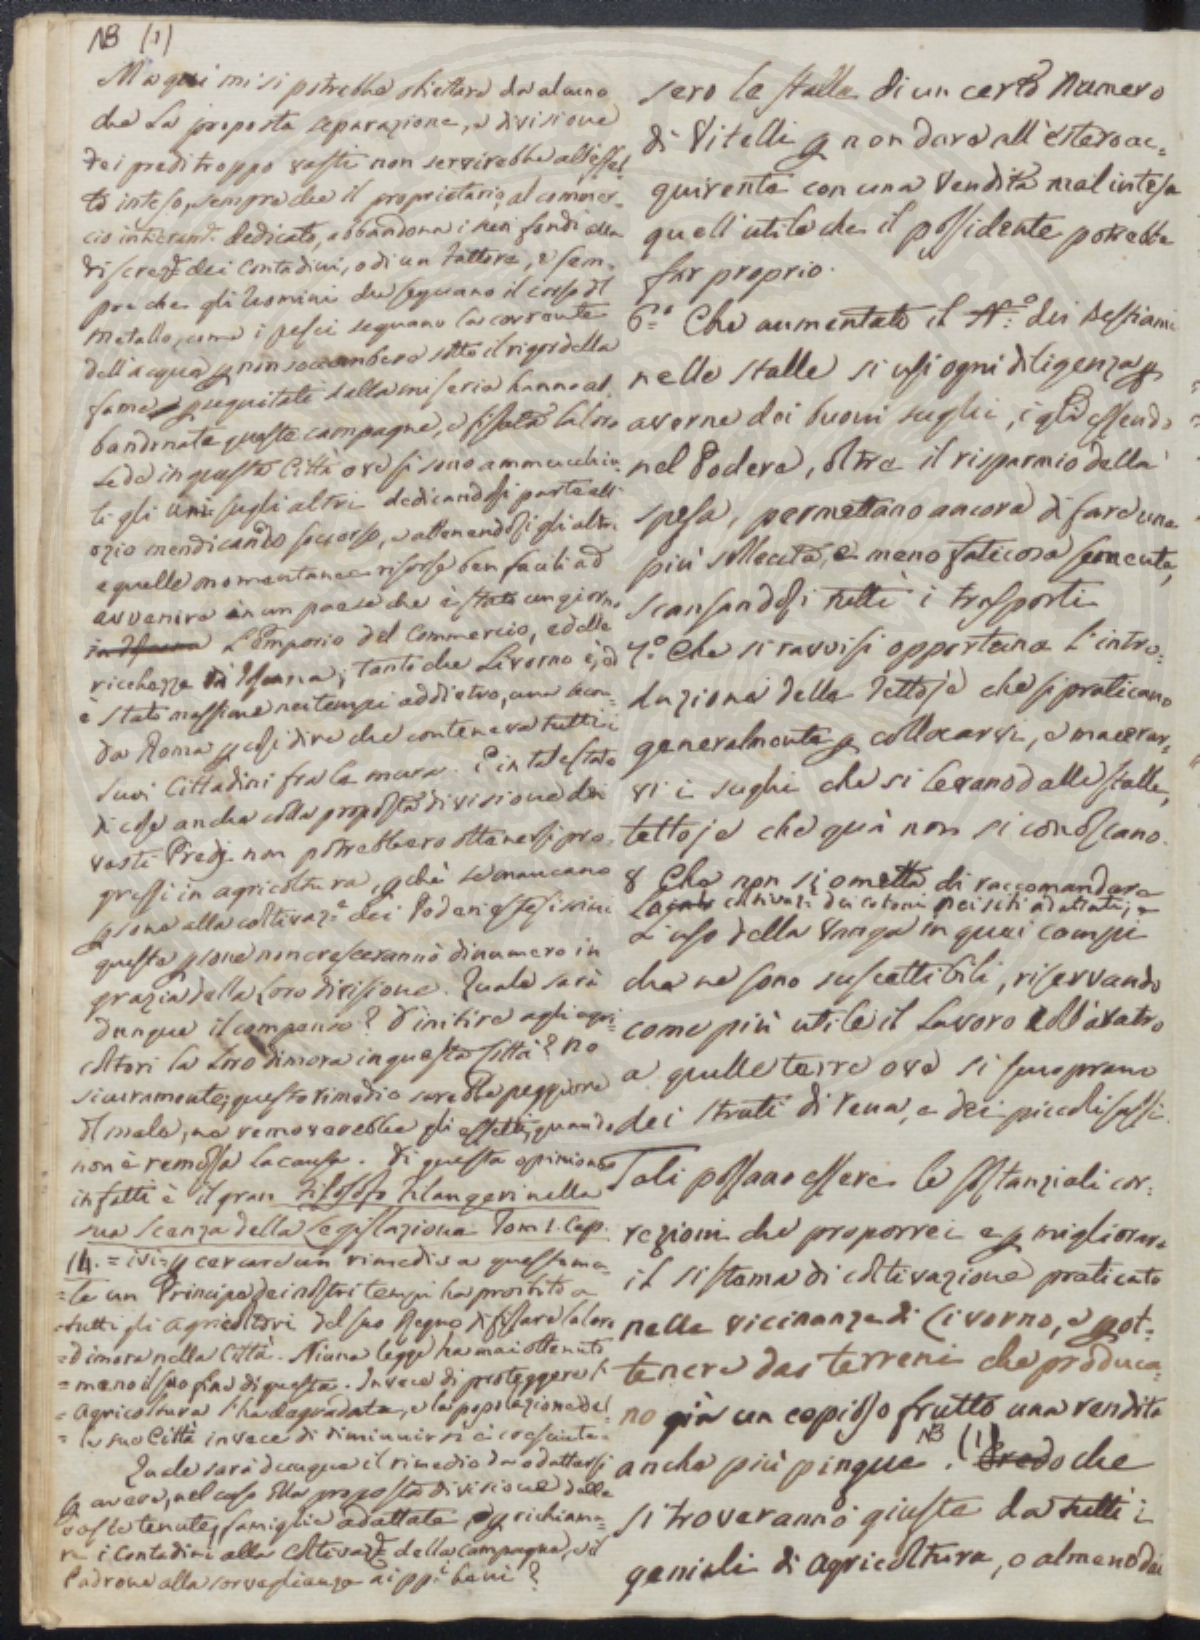 NB (1)
Ma quì mi si potrebbe obiettare da alcuno
che La proposta separazione, e divisione
dei predi troppo vasti non servirebbe all'effet
to inteso, sempre che il proprietario, al commer-
cio dedicato, abbandona i suoi fondi alla
discrez.e dei Contadini, o di un Fattore, e sem-
pre che gli Uomini che seguano il corso del
Metallo, come i pesci seguano la corrente
dell'acqua p non soccombere sotto il rigor della
fame, e p seguitati dalla miseria hanno ab
bandonate queste campagne, e fissata la loro
sede in questa Città ove si sono ammucchia-
ti gli uni sugli altri dedicandosi parte all'
ozio mendicando soccorso, e attenendosi gli altri
a quelle momentanee risorse ben facili ad
avvenire in un paese che è stato un giorno
L'Emporio del Commercio, e delle
ricchezze di Toscana; tanto che Livorno è, ed
è stato massime nei tempi addietro, una secon-
da Roma p così dire che conteneva tutti i
suoi Cittadini fra le mura. E in tal stato
di cose anche colla proposta divisione dei
vasti Predj non potrebbero ottenersi pro-
gressi in agricoltura, p chè se mancano
p sone alla coltivaz.e dei Poderi estesissimi
queste p sone non cresceranno di numero in
grazia della Loro divisione. Quale sarà
dunque il compenso? D'inibire agli agri-
coltori la Loro dimora in questa Città? No
sicuramente; questo rimedio sarebbe peggiore
del male, ne removerebbe gli effetti, quando
non è remossa la causa. Di questa opinione
infatti è il gran Filosofo Filangeri nella
sua Scenza della Legislazione Tom 1. Cap.
14. = ivi = p cercare un rimedio a questo ma-
=le un Principe dei nostri tempi ha proibito a
=tutti gli agricoltori del suo Regno di fissare la loro
=dimora nella Città. Niuna legge ha mai ottenuto
=meno il suo fine di questa. Invece di proteggere l'
=Agricoltura l'ha degradata, e la popolazione del
=le sue Città invece di diminuirsi è cresciuta =
Quale sarà dunque il rimedio da adattarsi
p avere, nel caso della proposta divisione delle
vaste tenute, famiglie adattate, e p richiama=
re i Contadini alla coltivaz.e della Campagna, e il
Padrone alla sorveglianza ai pp.i beni?
sero le stalle di un certo Numero
di Vitelli p non dare all'estero ac=
quirente con una Vendita mal intesa
quell'utile che il possidente potrebbe
far proprio.
6.° Che aumentato il N.° dei Bestiami
nelle stalle si usi ogni diligenza p
averne dei buoni sughi, i q.li essendo
nel Podere, oltre il risparmio della
spesa, permettano ancora di fare una
più sollecita, e meno faticosa sementa,
scansandosi tutti i trasporti
7.° Che si ravvisi opportuna L'intro-
duzione delle Tettoje che si praticano
generalmente p collocarvi, e macerar-
vi i sughi che si Levano dalle stalle,
tettoje che quà non si conoscano.
8 Che non si ometta di raccomandare
La coltivaz. dei cotoni nei siti adattati; e
L'uso della Vanga in quei campi
che ne sono suscettibili, riservando
come più utile il Lavoro coll'aratro
a quelle terre ove si scuoprano
dei strati di rena, e dei piccoli sassi.
Tali possano essere le sostanziali cor-
rezioni che proporrei e p migliorare
il sistema di coltivazione praticato
nelle vicinanze di Livorno, e p ot-
tenere dai terreni che produca-
no già un copioso frutto una rendita
anche più pingue. NB (1) Credo che
si troveranno giuste da tutti i
geniali di Agricoltura, o almeno dai